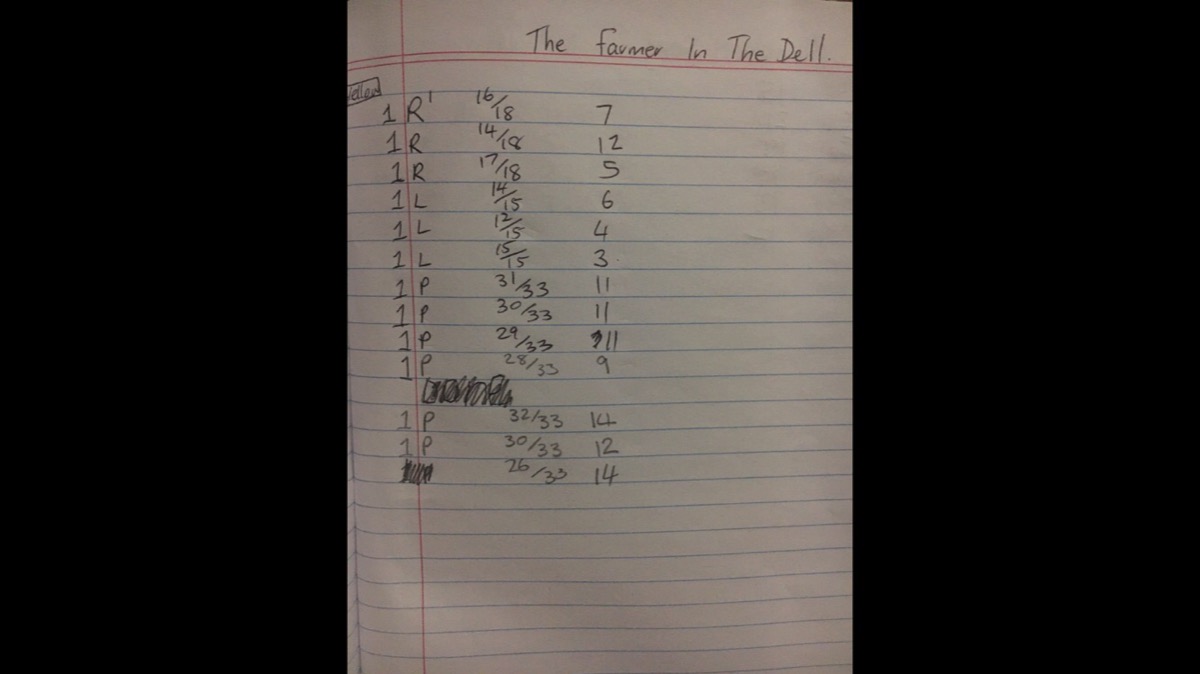 The Farmer In The Dell.
1 R' 16/18 7
1 R 14/18 12
1 R 17/18 5
1 L 14/15 6
1 L 12/15 4
1 L 15/15 3
1 P 31/33 11
1 P 30/33 11
1 P 29/33 11
1 P 28/33 9
1 P 32/33 14
1 P 30/33 12
26/33 14